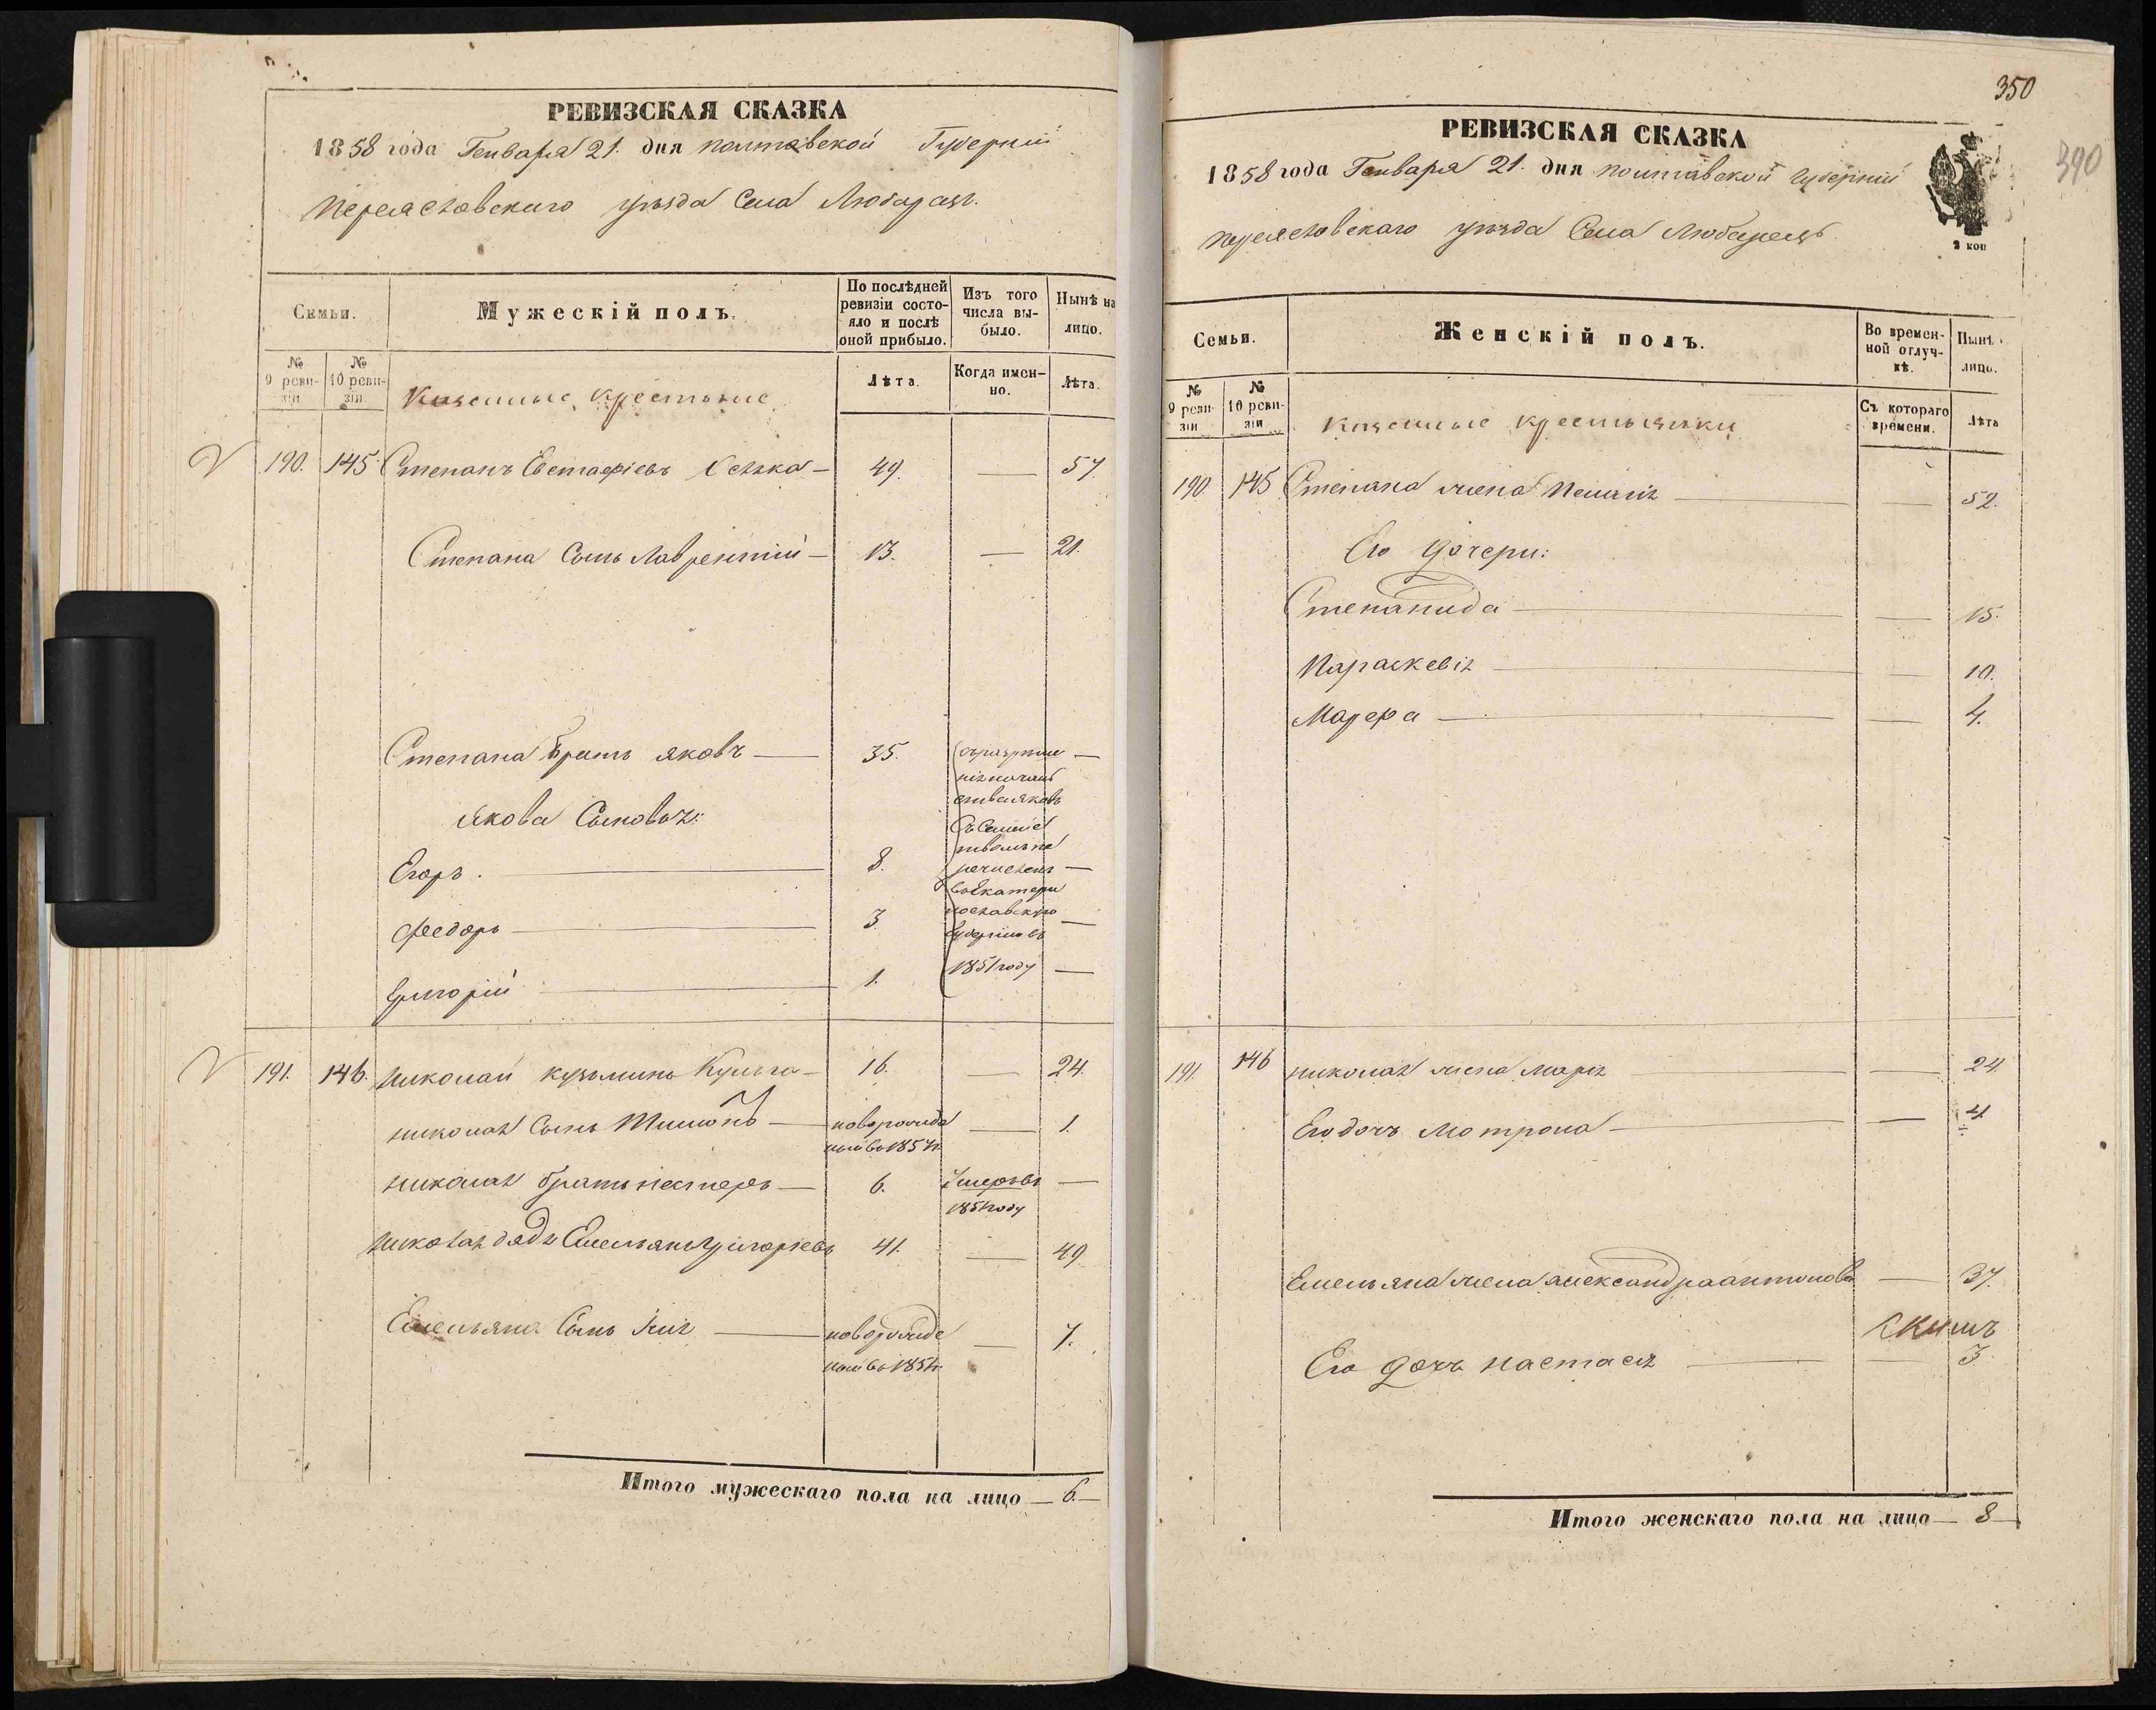 РЕВИЗСКАЯ СКАЗКА
1858 года Генваря 21. дня полтавской Губерніи
Переяславскаго уѣзда Села Любарецъ.
Семьи.
Мужескій полъ.
По послѣдней ревизіи состояло и послѣ оной прибыло.
Изъ того числа выбыло.
Нынѣ на лицо.
№ 9 ревизіи
№ 10 ревизіи.
Казенные крестьяне
Лѣта.
Когда именно.
Лѣта.
190. 145 Степанъ Евстафіевъ — 49. — 57.
Степана Сынъ Лаврентий — 13. — 21.
Степана братъ яковъ — 35. —
якова Сыновья:
Егоръ. — 8. —
Федоръ — 3 —
Григорій — 1. —
въ Екатери
нославскую
Губернию въ
1851 году
191. 146. николай кузьминъ Кульга — 16. — 24.
николая Сынъ Тимофъ — новорожде — 1.
ный въ 1857 г.
николая братъ нестеръ — 6. Умеръ въ —
1851 году
николая дядя Емельянъ Григориевъ 41. — 49
Емельяна Сынъ — новорожде — 7.
ный въ 1851 г.
Итого мужескаго пола на лицо — 6. —
350
390
РЕВИЗСКАЯ СКАЗКА
1858 года Генваря 21. дня полтавской губерніи
переяславскаго уѣзда Села Любарецъ
2 коп
Семьи.
Женскій полъ.
Во временной отлучкѣ.
Нынѣ лицо.
№ 9 ревизіи
№ 10 ревизіи
казенные крестьянки
Съ котораго времени.
Лѣта
190. 145 Степана жена Пелагія — — 52.
Его дочери:
Степанида — — 15.
Параскевія — — 10.
Марфа — — 4.
191. 146 николая жена марія — — 24
Его дочь Мотрона — — 4
Емельяна жена александра антонова — 37.
Его дочь настасія — — 3
Итого женскаго пола на лицо — 8 —